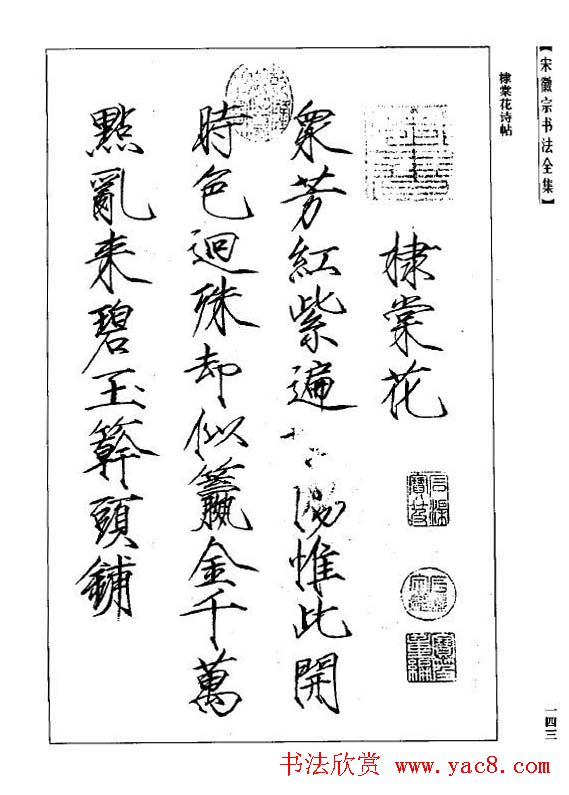 【宋徽宗书法全集】
棣棠花诗帖
棣棠花
衆芳紅紫遍惟此開
時色迥殊却似籯金千萬
點亂来碧玉簳頭鋪
石渠寶笈
寶笈重編
一四三
书法欣赏 www.yac8.com